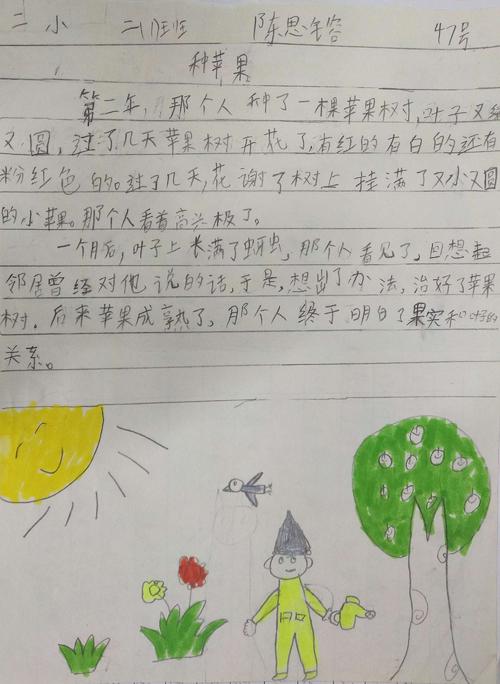 二小 二(1)班 陈思容 47号
种苹果
第二年,那个人种了一棵苹果树,叶子又绿
又圆,过了几天苹果树开花了,有红的有白的还有
粉红色的。过了几天,花谢了树上挂满了又小又圆
的小苹果。那个人看着高兴极了。
一个月后,叶子上长满了蚜虫,那个人看见了,回想起
邻居曾经对他说的话,于是,想出了办法,治好了苹果
树。后来苹果成熟了,那个人终于明白了果实和叶的
关系。